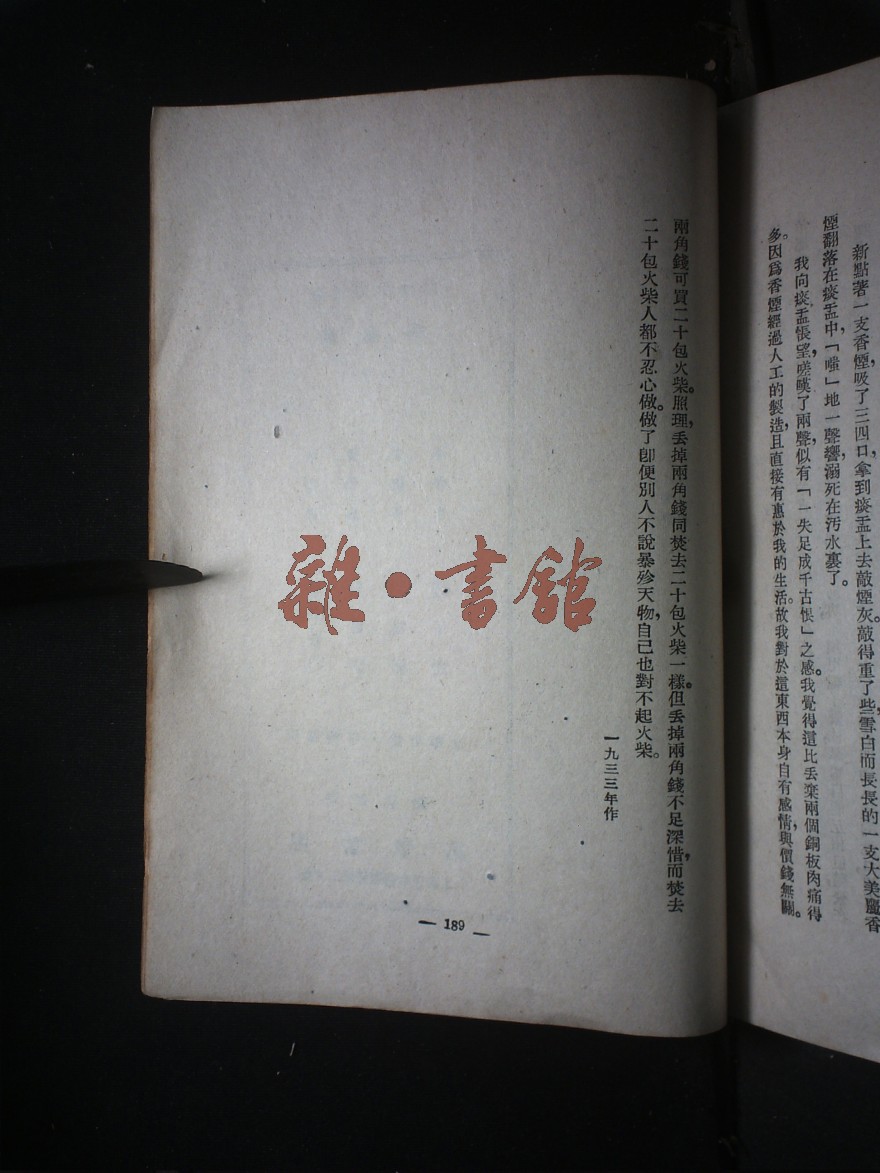 新點著一支香煙，吸了三四口，拿到痰盂上去敲煙灰。敲得重了些，雪白而長長的一支大美麗香
煙翻落在痰盂中，「嗤」地一聲響，溺死在汚水裏了。
我向痰盂悵望，嗟嘆了兩聲，似有「一失足成千古恨」之感。我覺得這比丟棄兩個銅板肉痛得
多。因爲香煙經過人工的製造，且直接有惠於我的生活。故我對於這東西本身自有感情，與價錢無關。
兩角錢可買二十包火柴。照理，丢掉兩角錢同焚去二十包火柴一樣。但丢掉兩角錢不足深惜，而焚去
二十包火柴人都不忍心做。做了卽便別人不說暴殄天物，自己也對不起火柴。
一九三三年作
— 189 —
雜•書館